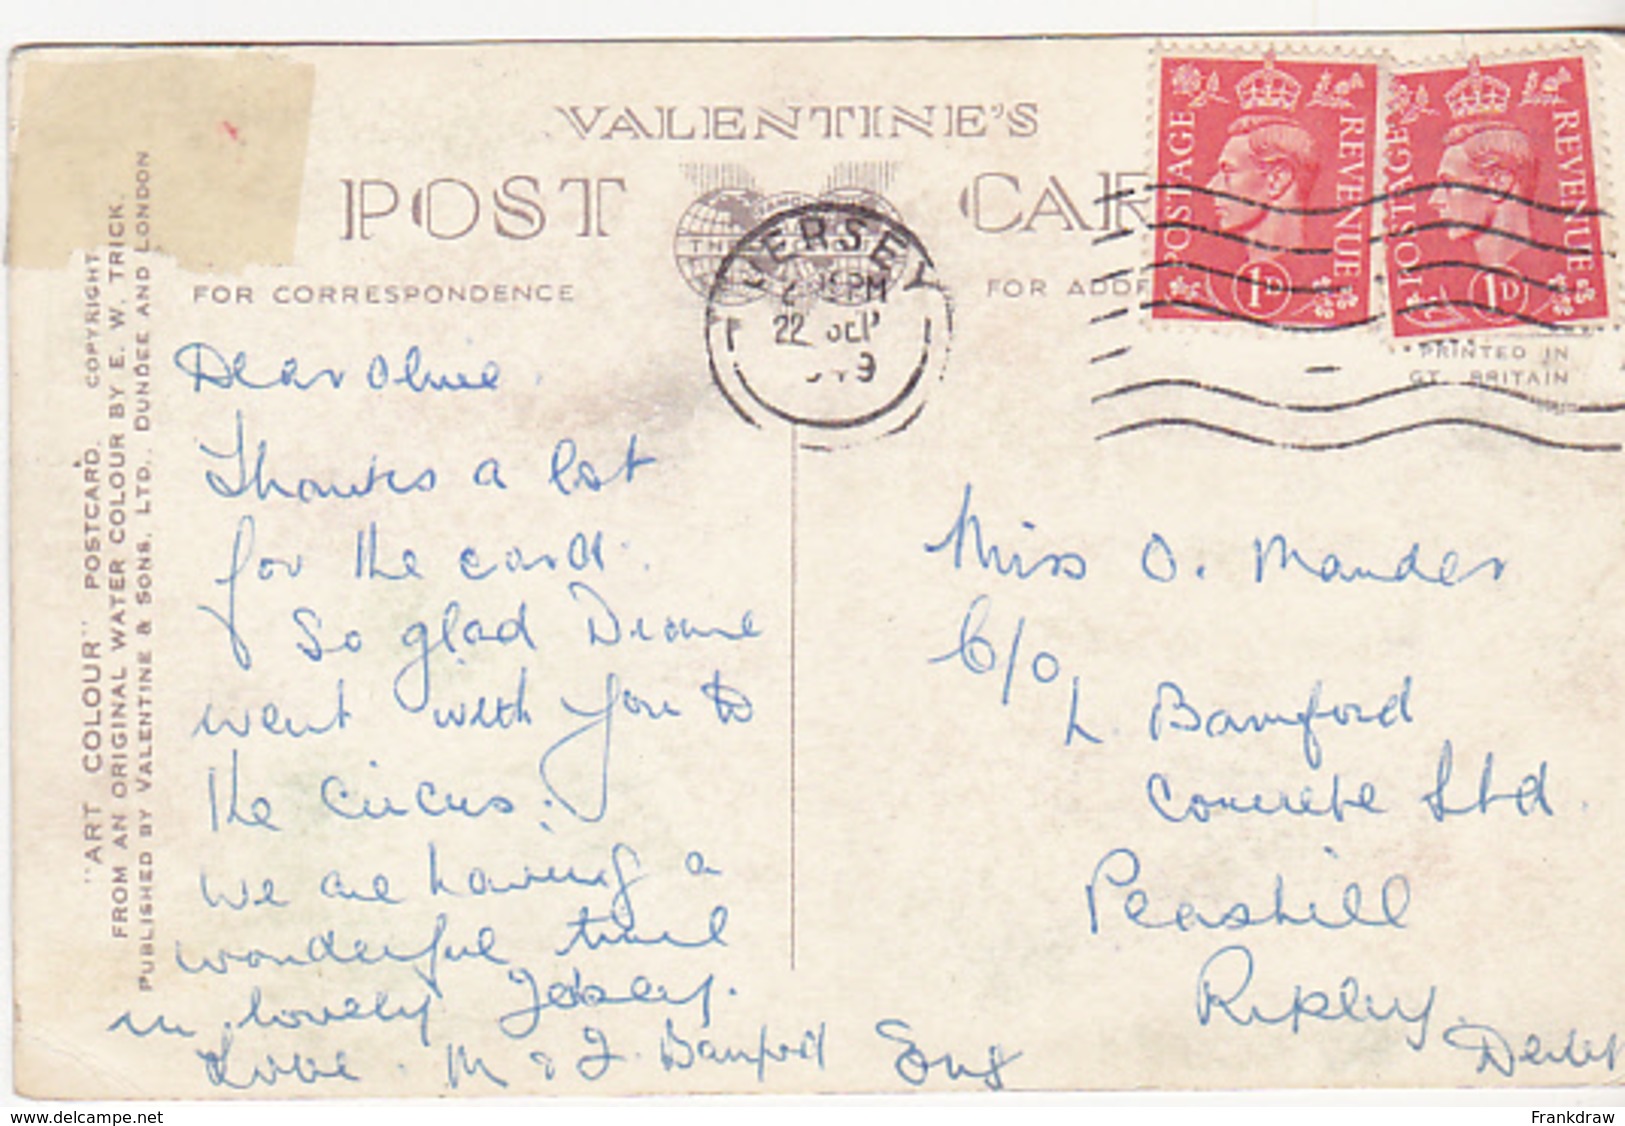 VALENTINE'S
POST CAR
FOR CORRESPONDENCE
FOR ADDR
POSTAGE REVENUE
1D
POSTAGE REVENUE
1D
PRINTED IN
GT. BRITAIN
JERSEY
PM
22 SEP
"ART COLOUR" POSTCARD. COPYRIGHT
FROM AN ORIGINAL WATER COLOUR BY E. W. TRICK.
PUBLISHED BY VALENTINE & SONS, LTD., DUNDEE AND LONDON
Dear Olive
Thanks a lot
for the card.
So glad Diane
went with you to
the circus.
We are having a
wonderful time
in lovely Jersey.
Love. M & J. Bamford
Miss O. Mander
C/o
L. Bamford
Concrete Ltd.
Peashill
Ripley.
Derby
Eng
www.delcampe.net
Frankdraw